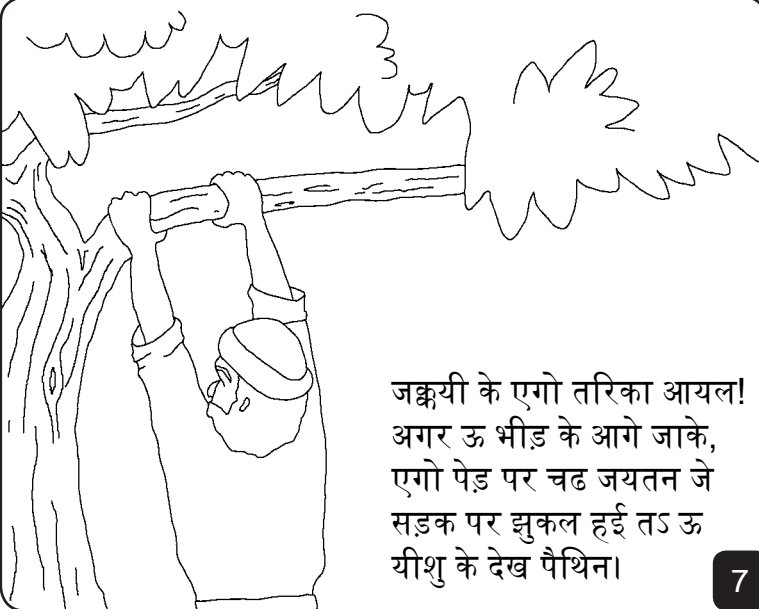 जक्कयी के एगो तरिका आयल!
अगर ऊ भीड़ के आगे जाके,
एगो पेड़ पर चढ जयतन जे
सड़क पर झुकल हई तऽ ऊ
यीशु के देख पैथिन।
7